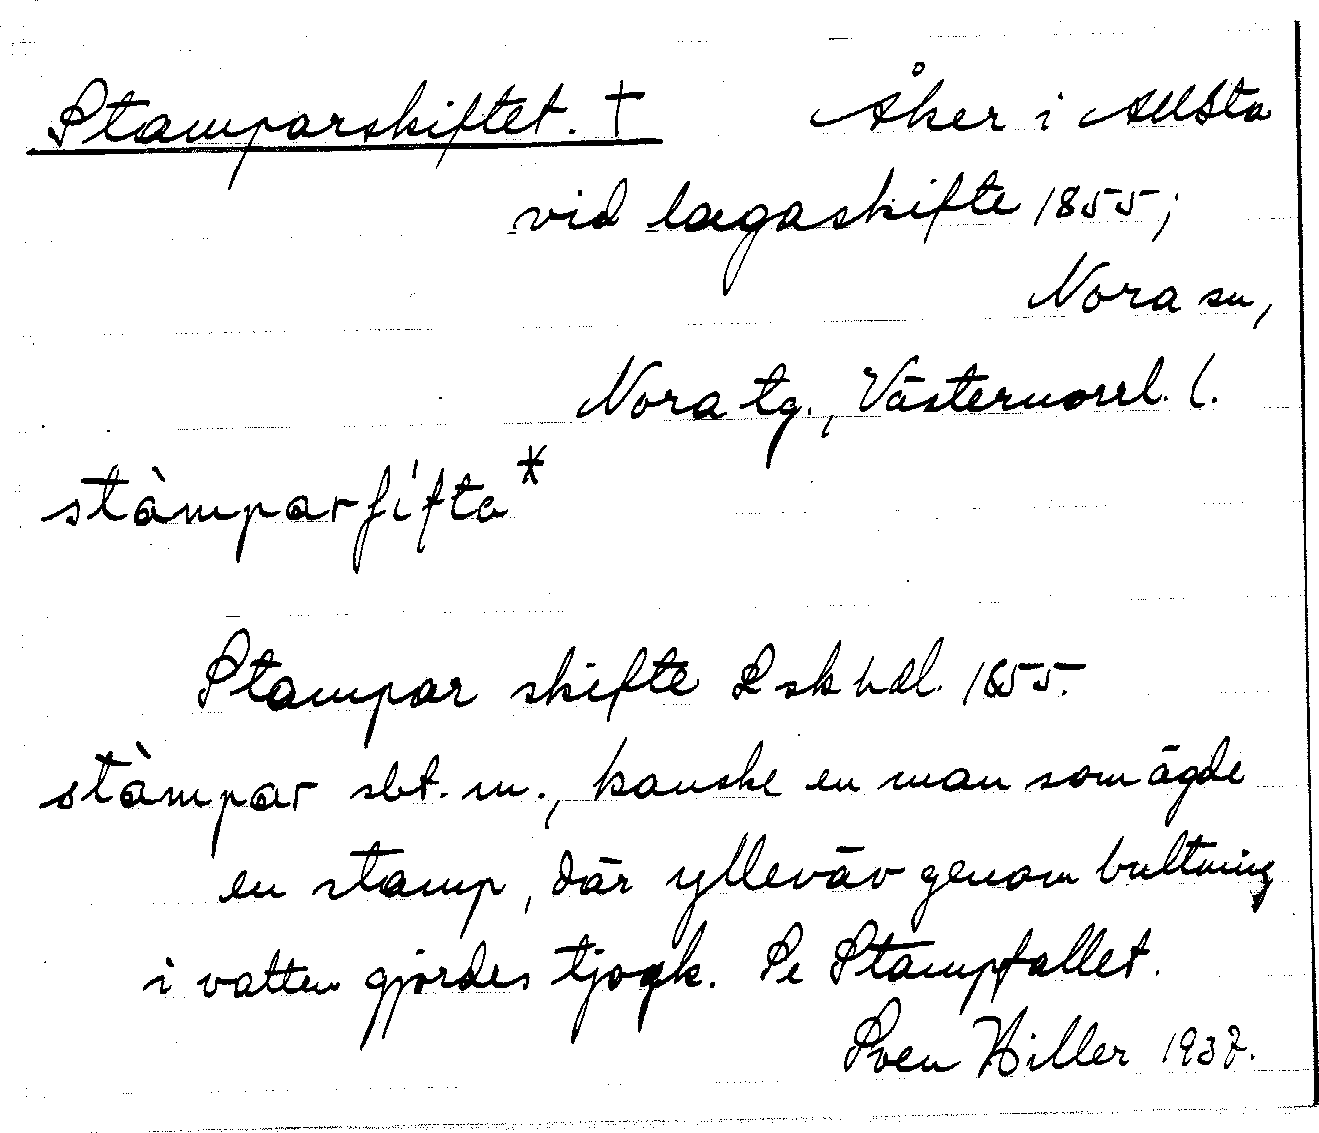 Stamparskiftet. † Åker i Allsta
vid lagaskifte 1855;
Nora sn,
Nora tg., Västernorrl. l.
stàmparʃífta*
Stampar skifte L sk hdl. 1855.
stàmpar sbt. m., kanske en man som ägde
en stamp, där ylleväv genom bultning
i vatten gjordes tjock. Se Stampfallet.
Sven Hiller 1937.